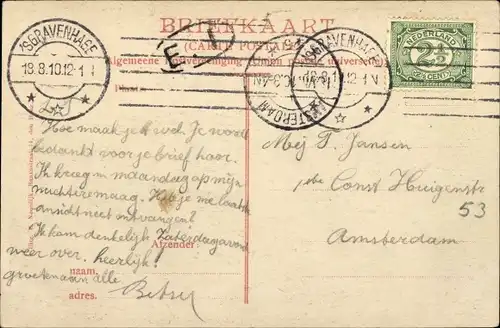 BRIEFKAART
(CARTE POSTALE)
Algemeene Postvereeniging (Union postale universelle)
'SGRAVENHAGE
18.8.10.12-1 N
'SGRAVENHAGE
18.8.10.12-1 N
AMSTERDAM
NEDERLAND
2½
CENT
Plaats:
Hoe maak je 't wel. Je wordt
bedankt voor je brief hoor.
Ik kreeg 'm maandag op mijn
nuchtere maag. Heb je me laatste
niet ontvangen?
Ik kom denkelijk Zaterdagavond
weer over. heerlijk!
groeten aan alle
Betsy
Afzender:
naam.
adres.
Mej T. Jansen
1ste Const Huigenstr
53
Amsterdam